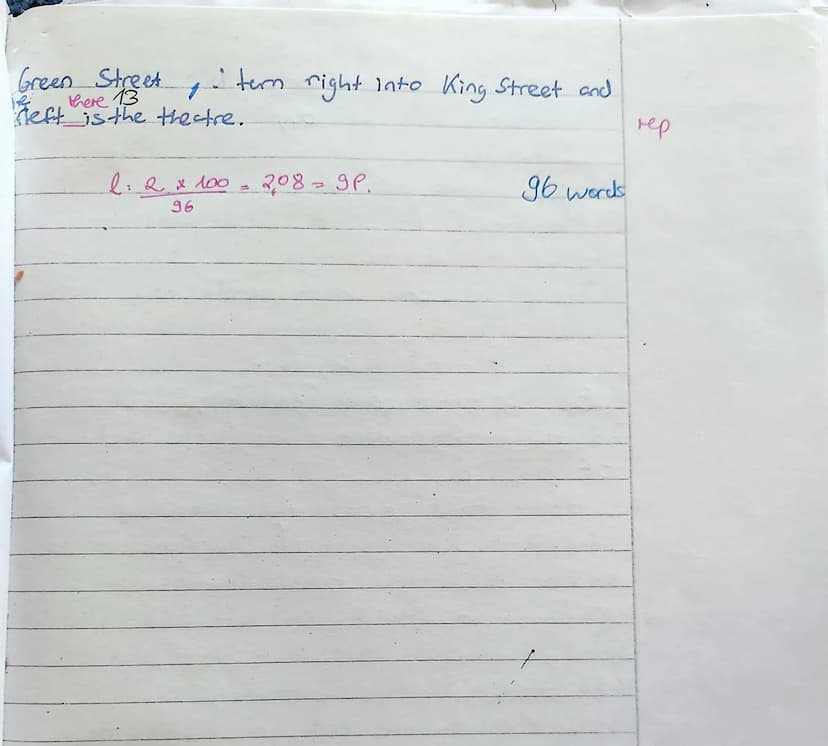 Green Street , i turn right into King Street and
there 13
left is the theatre.
rep
l: 2 x 100 = 2,08 = 9P.
96
96 words